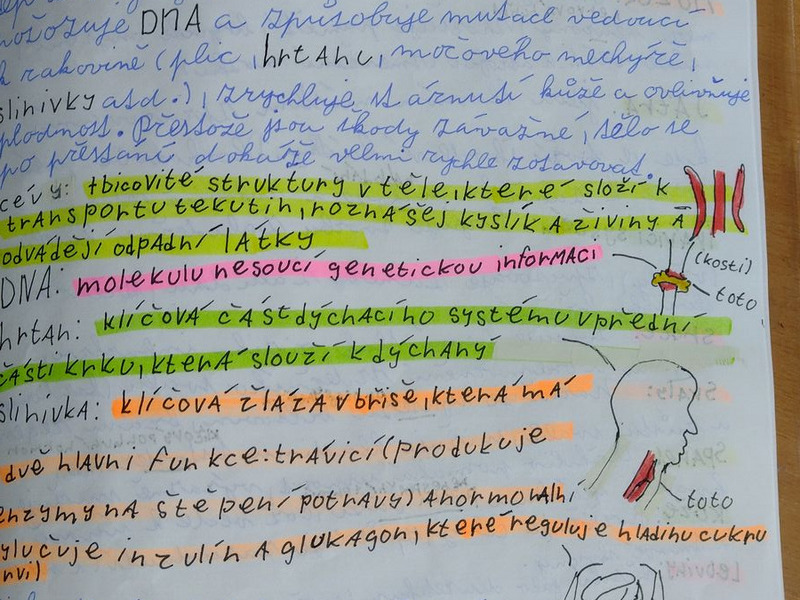 DNA a způsobuje mutace vedoucí
k rakovině (plic, hrtanu, močového mechýře,
slinivky atd.), zrychluje stárnutí kůže a ovlivňuje
plodnost. Přestože jsou škody závažné, tělo se
po přestání dokáže velmi rychle zotavovat.
cévy: tbicovité struktury v těle, které složí k
transportu tekutin, roznášej kyslík a živiny a
odvádějí odpadní látky
(kosti)
DNA: molekulu nesoucí genetickou informaci
toto
hrtan: klíčová část dýchacího systému v přední
části krku, která slouží k dýchaný
slinivka: klíčová žláza v břiše, která má
dvě hlavní funkce: trávicí (produkuje
enzymy na štěpení potravy) a hormonalní
toto
ylučuje inzulín a glukagon, které reguluje hladinu cukru
rvi)